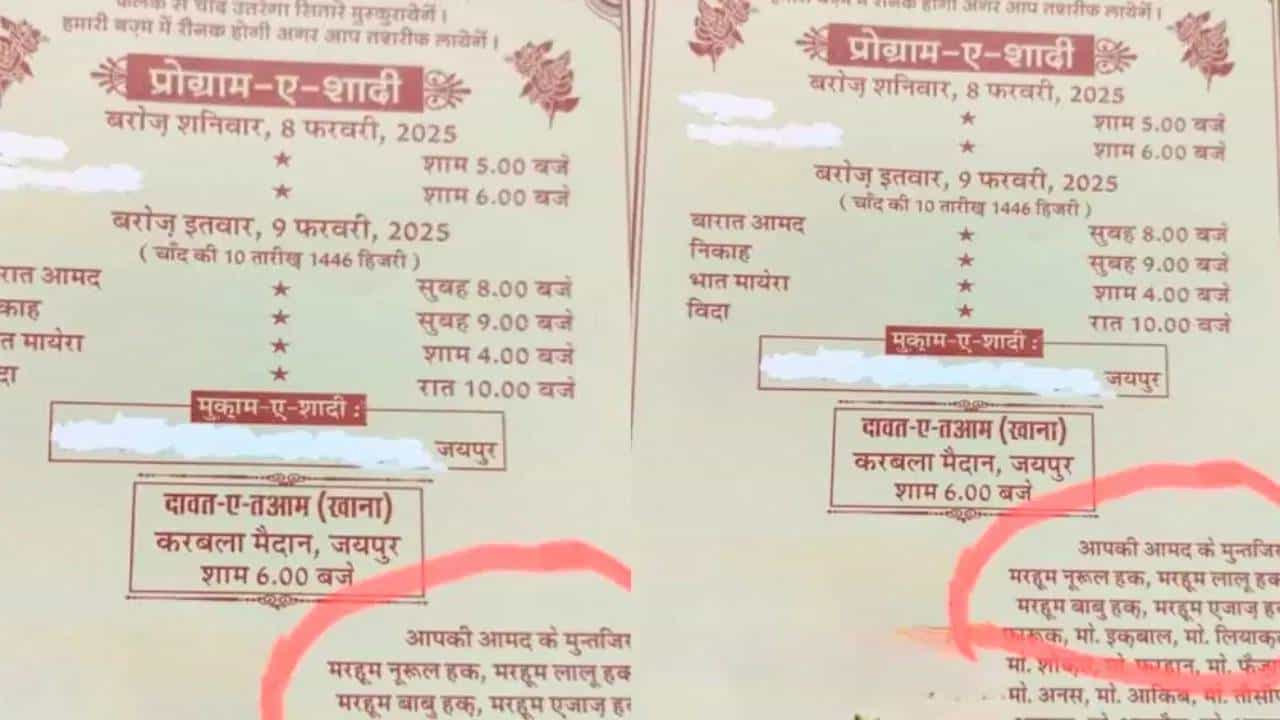 फलक से चाँद उतरेगा सितारे मुस्करायेगें।
हमारी बज़्म में रौनक होगी अगर आप तशरीफ लायेगें।
प्रोग्राम-ए-शादी
बरोज़ शनिवार, 8 फरवरी, 2025
★ शाम 5.00 बजे
★ शाम 6.00 बजे
बरोज़ इतवार, 9 फरवरी, 2025
( चाँद की 10 तारीख़ 1446 हिजरी )
रात आमद ★ सुबह 8.00 बजे
काह ★ सुबह 9.00 बजे
त मायेरा ★ शाम 4.00 बजे
दा ★ रात 10.00 बजे
मुक़ाम-ए-शादी :
जयपुर
दावत-ए-तआम (खाना)
करबला मैदान, जयपुर
शाम 6.00 बजे
आपकी आमद के मुन्तजिर
मरहूम नूरूल हक, मरहूम लालू हक
मरहूम बाबु हक़, मरहूम एजाज़ ह
हमारी बज़्म में रौनक होगी अगर आप तशरीफ लायेगें।
प्रोग्राम-ए-शादी
बरोज़ शनिवार, 8 फरवरी, 2025
★ शाम 5.00 बजे
★ शाम 6.00 बजे
बरोज़ इतवार, 9 फरवरी, 2025
( चाँद की 10 तारीख़ 1446 हिजरी )
बारात आमद ★ सुबह 8.00 बजे
निकाह ★ सुबह 9.00 बजे
भात मायेरा ★ शाम 4.00 बजे
विदा ★ रात 10.00 बजे
मुक़ाम-ए-शादी :
जयपुर
दावत-ए-तआम (खाना)
करबला मैदान, जयपुर
शाम 6.00 बजे
आपकी आमद के मुन्तजिर
मरहूम नूरूल हक, मरहूम लालू हक
मरहूम बाबु हक़, मरहूम एजाज़ ह
फारूक, मो. इक़बाल, मो. लियाक़
मो. फरहान, मो. फैज़ा
मो. अनस, मो. आकिब, मो. तौसी